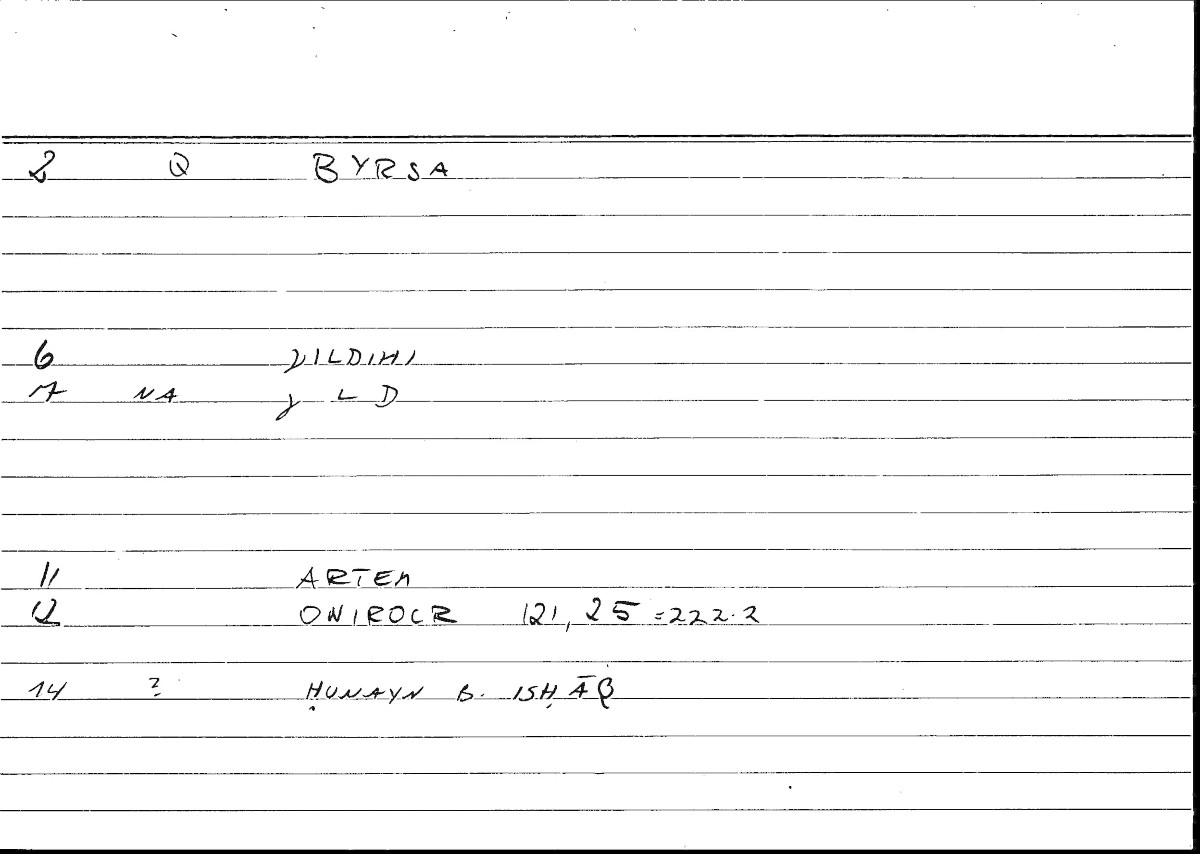 2 Q BYRSA
6 ǦILDIHI
7 NA ǧ L D
11 ARTEM
12 ONIROCR 121, 25 = 222.2
14 ? ḤUNAYN B. ISḤĀQ